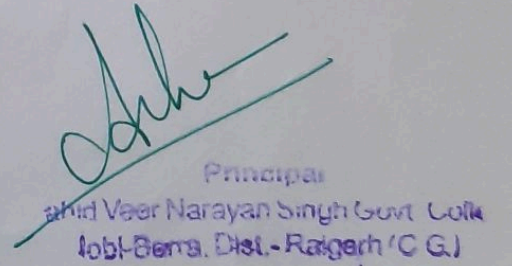 Principal
ahid Veer Narayan Singh Govt Colle
Jobi-Barra, Dist.- Raigarh (C G.)